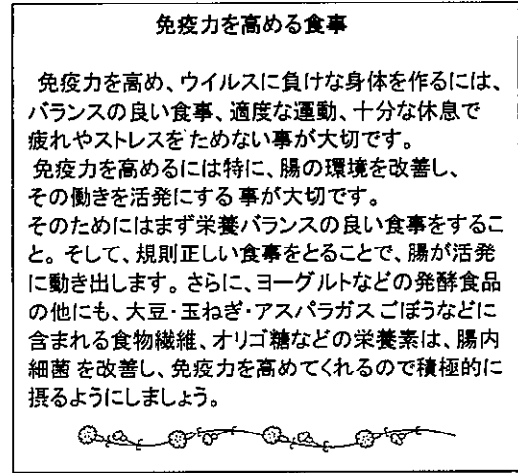 免疫力を高める食事
免疫力を高め、ウイルスに負けな身体を作るには、
バランスの良い食事、適度な運動、十分な休息で
疲れやストレスをためない事が大切です。
免疫力を高めるには特に、腸の環境を改善し、
その働きを活発にする事が大切です。
そのためにはまず栄養バランスの良い食事をするこ
と。そして、規則正しい食事をとることで、腸が活発
に動き出します。さらに、ヨーグルトなどの発酵食品
の他にも、大豆・玉ねぎ・アスパラガスごぼうなどに
含まれる食物繊維、オリゴ糖などの栄養素は、腸内
細菌を改善し、免疫力を高めてくれるので積極的に
摂るようにしましょう。